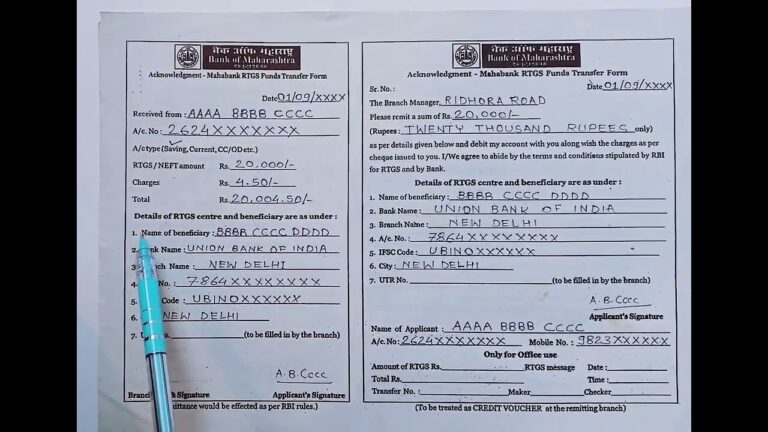 बैंक ऑफ महाराष्ट्र
Bank of Maharashtra
Acknowledgment - Mahabank RTGS Funds Transfer Form
Date 01/09/XXXX
Received from : AAAA BBBB CCCC
A/c. No : 2624XXXXXXX
A/c type (Saving, Current, CC/OD etc.)
RTGS/NEFT amount Rs. 20,000/-
Charges Rs. 4.50/-
Total Rs. 20,004.50/-
Details of RTGS centre and beneficiary are as under :
1. Name of beneficiary : BBBB CCCC DDDD
2. Bank Name : UNION BANK OF INDIA
3. Branch Name : NEW DELHI
4. No. : 7864XXXXXXXX
5. Code : UBINOXXXXXX
6. NEW DELHI
7. No. (to be filled in by the branch)
A.B.Cccc
Branch & Signature Applicant's Signature
mittance would be effected as per RBI rules.)
बैंक ऑफ महाराष्ट्र
Bank of Maharashtra
Acknowledgment - Mahabank RTGS Funds Transfer Form
Sr. No. : Date 01/09/XXXX
The Branch Manager, RIDHORA ROAD
Please remit a sum of Rs. 20,000/-
(Rupees : TWENTY THOUSAND RUPEES only)
as per details given below and debit my account with you along wish the charges as per
cheque issued to you. I/We agree to abide by the terms and conditions stipulated by RBI
for RTGS and by Bank.
Details of RTGS centre and beneficiary as under :
1. Name of beneficiary : BBBB CCCC DDDD
2. Bank Name : UNION BANK OF INDIA
3. Branch Name : NEW DELHI
4. A/c. No. : 7864XXXXXXXX
5. IFSC Code : UBINOXXXXXX
6. City : NEW DELHI
7. UTR No. (to be filled in by the branch)
A.B.Cccc
Applicant's Signature
Name of Applicant : AAAA BBBB CCCC
A/c. No: 2624XXXXXXX Mobile No. : 9823XXXXXX
Only for Office use
Amount of RTGS Rs. RTGS message Date :
Total Rs. Time :
Transfer No. : Maker Checker
(To be treated as CREDIT VOUCHER at the remitting branch)